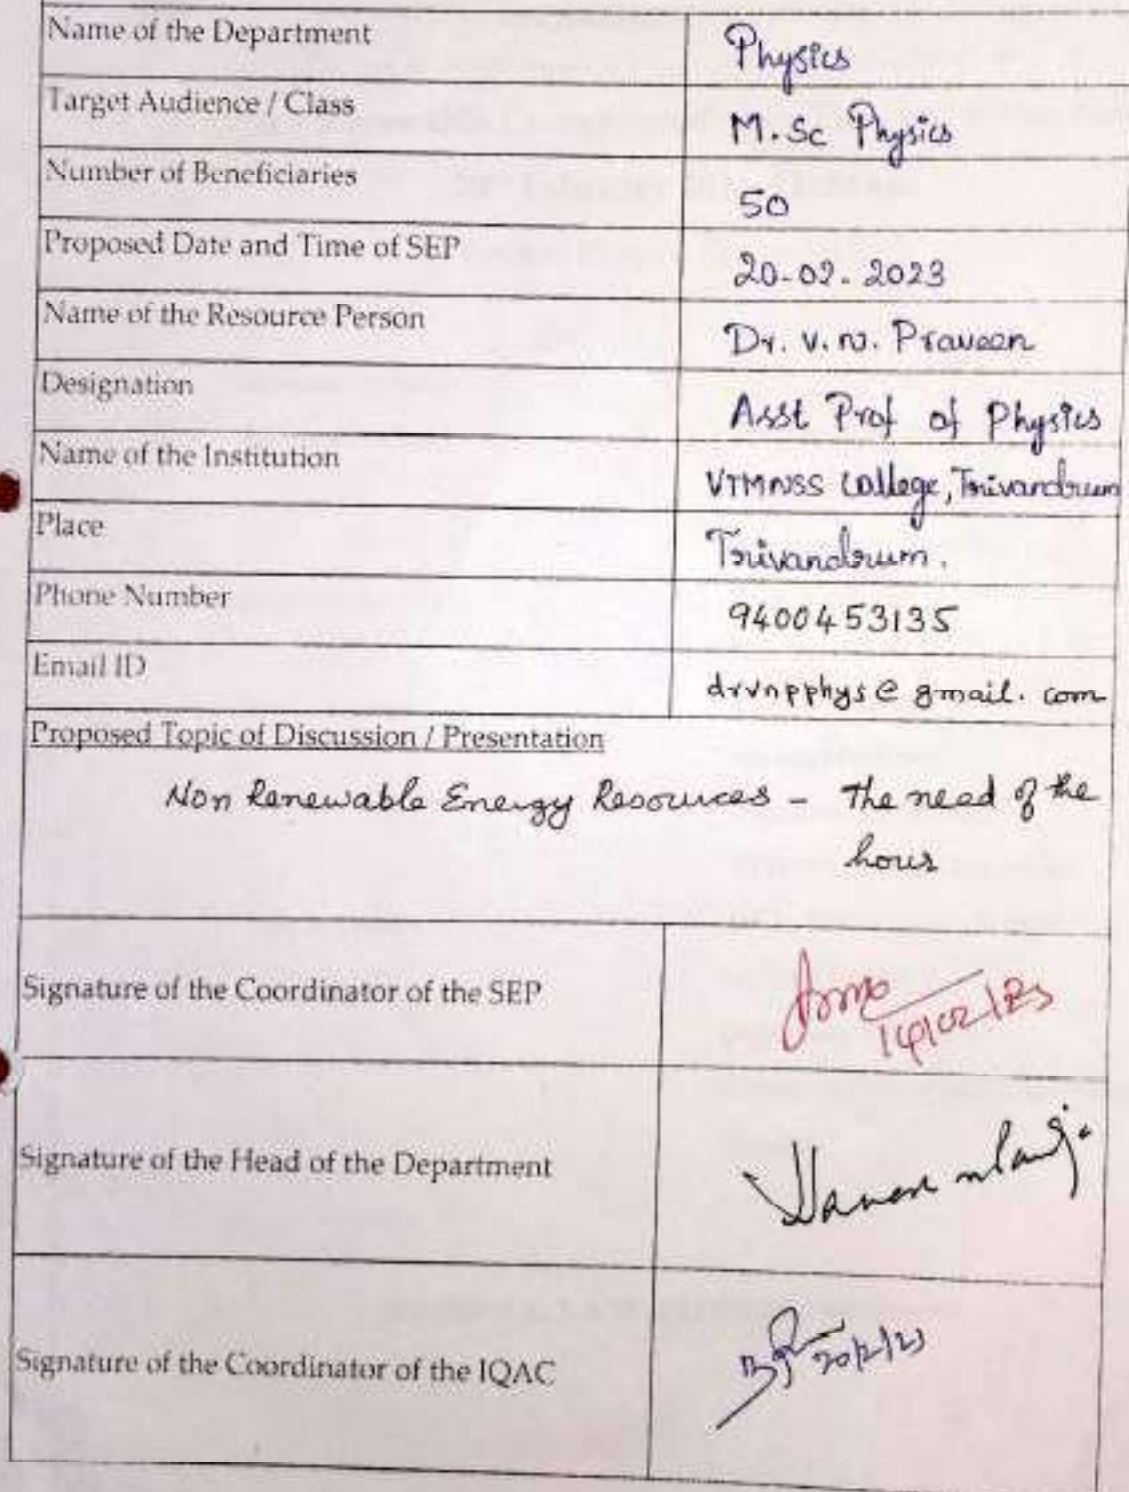 Name of the Department Physics
Target Audience / Class M.Sc Physics
Number of Beneficiaries 50
Proposed Date and Time of SEP 20-02-2023
Name of the Resource Person Dr. V.N. Praveen
Designation Asst Prof of Physics
Name of the Institution VTMNSS College, Trivandrum
Place Trivandrum.
Phone Number 9400453135
Email ID drvnpphys@gmail.com
Proposed Topic of Discussion / Presentation
Non Renewable Energy Resources - The need of the
hour
Signature of the Coordinator of the SEP
Signature of the Head of the Department
Signature of the Coordinator of the IQAC 20/2/23